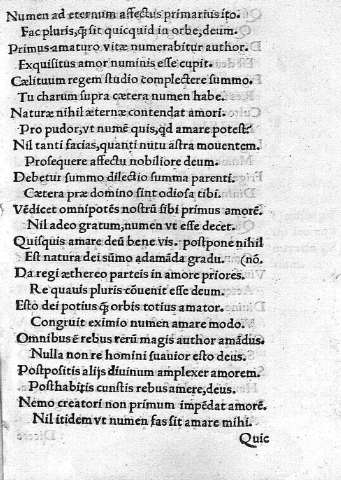 Numen ad eternum affectus primarius ito.
Fac pluris, q̃ sit quicquid in orbe, deum.
Primus amaturo vitæ numerabitur author.
Exquisitus amor numinis esse cupit.
Cælituum regem studio complectere summo.
Tu charum supra cætera numen habe.
Naturæ nihil æternæ contendat amori.
Pro pudor, vt numẽ quis, qd amare potest?
Nil tanti facias, quanti nutu astra mouentem.
Prosequere affectu nobiliore deum.
Debetur summo dilectio summa parenti.
Cætera præ domino sint odiosa tibi.
Vẽdicet omnipotẽs nostrũ sibi primus amorẽ.
Nil adeo gratum, numen vt esse decet.
Quisquis amare deũ bene vis. postpone nihil
Est natura dei sũmo adamãda gradu. (nõ.
Da regi æthereo parteis in amore priores.
Re quauis pluris cõuenit esse deum.
Esto dei potius q̃ orbis totius amator.
Congruit eximio numen amare modo.
Omnibus ẽ rebus rerũ magis author amãdus.
Nulla non re homini suauior esto deus.
Postpositis alijs diuinum amplexer amorem.
Posthabitis cunctis rebus amere, deus.
Nemo creatori non primum impẽdat amorẽ.
Nil itidem vt numen fas sit amare mihi.
Quic